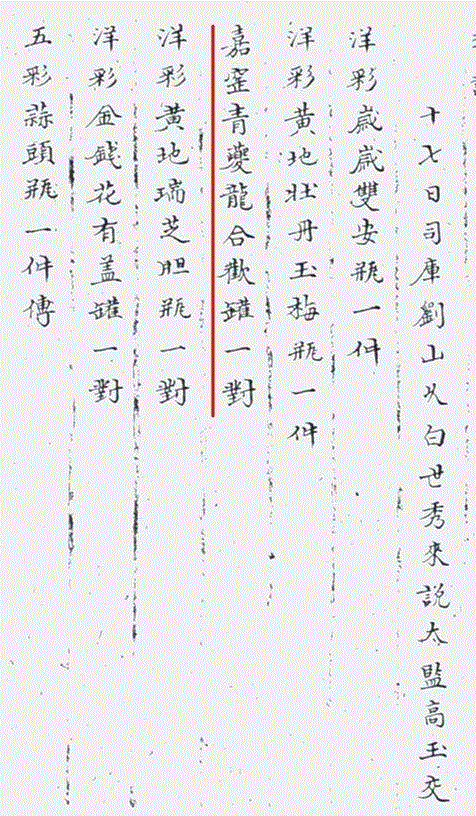 十七日司庫劉山久白世秀來說太監高玉交
洋彩歲歲雙安瓶一件
洋彩黃地壯丹玉梅瓶一件
嘉窑青夔龍合歡罐一對
洋彩黃地瑞芝胆瓶一對
洋彩金錢花有盖罐一對
五彩蒜頭瓶一件傳